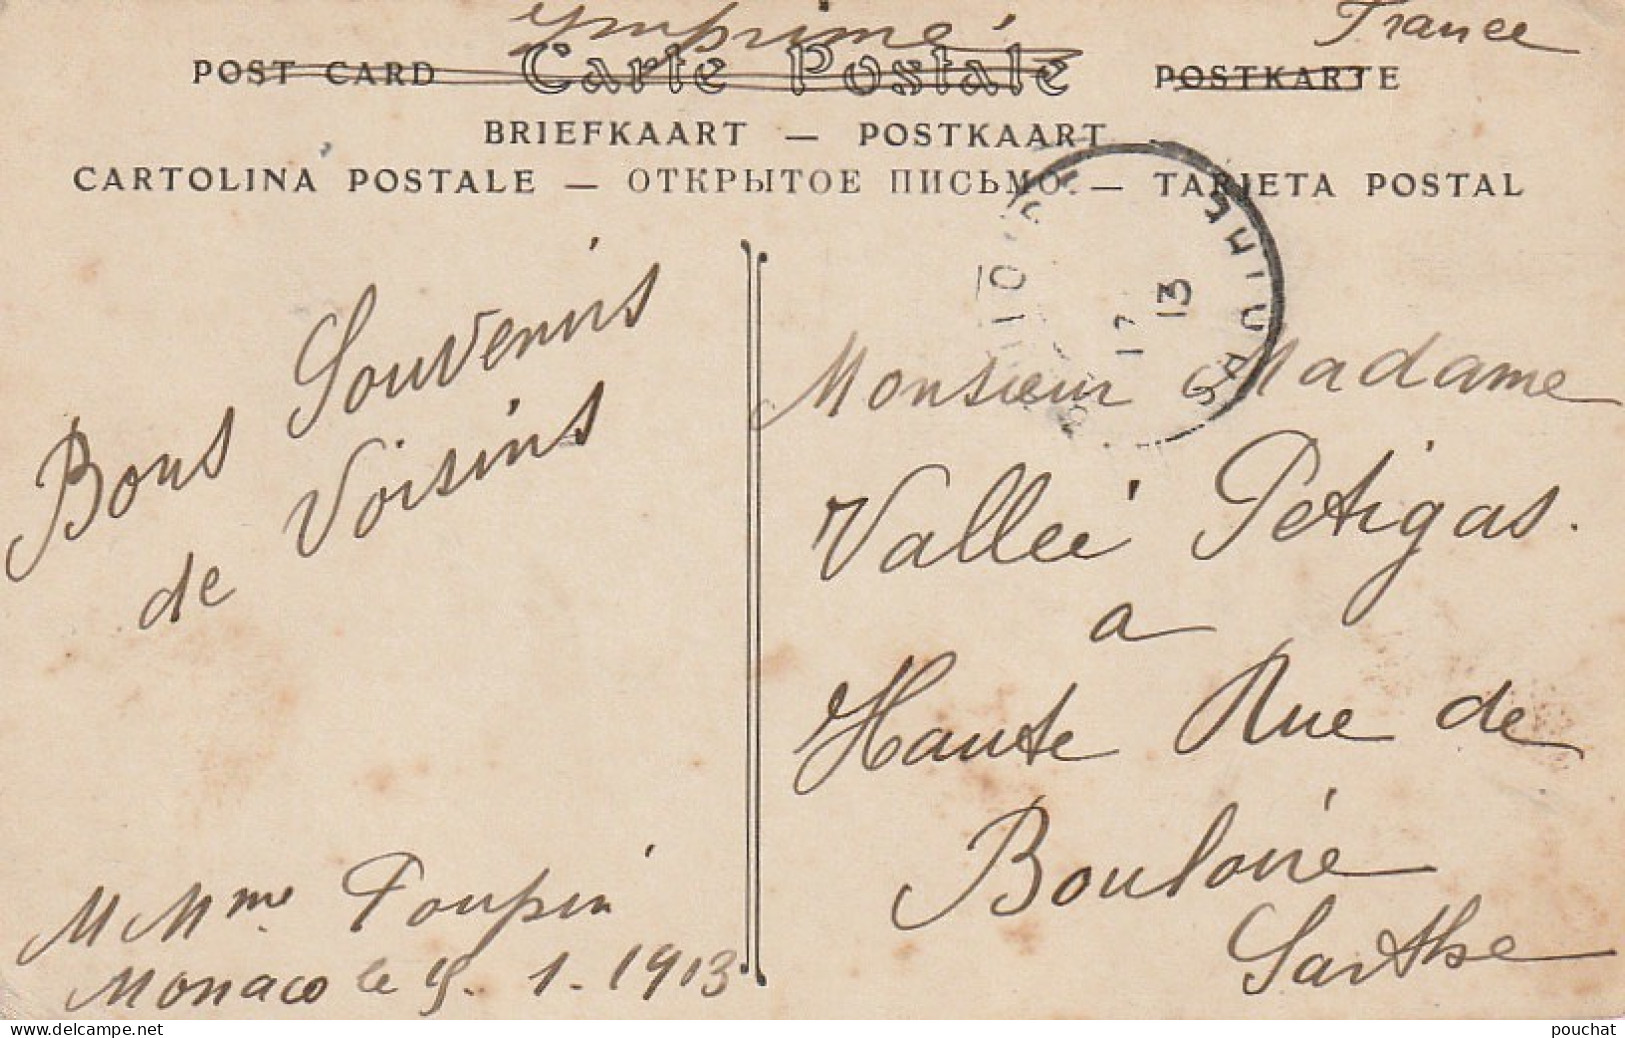 Imprimé
France
POST CARD Carte Postale POSTKARTE
BRIEFKAART — POSTKAART
CARTOLINA POSTALE — ОТКРЫТОЕ ПИСЬМО — TARJETA POSTAL
Bons Souvenirs
de Voisins
M Mme. Toupin
Monaco le 1. 1913
13
Monsieur Madame
Vallée Petigas.
a
Haute Rue de
Bouloire
Sarthe
www.delcampe.net
pouchat